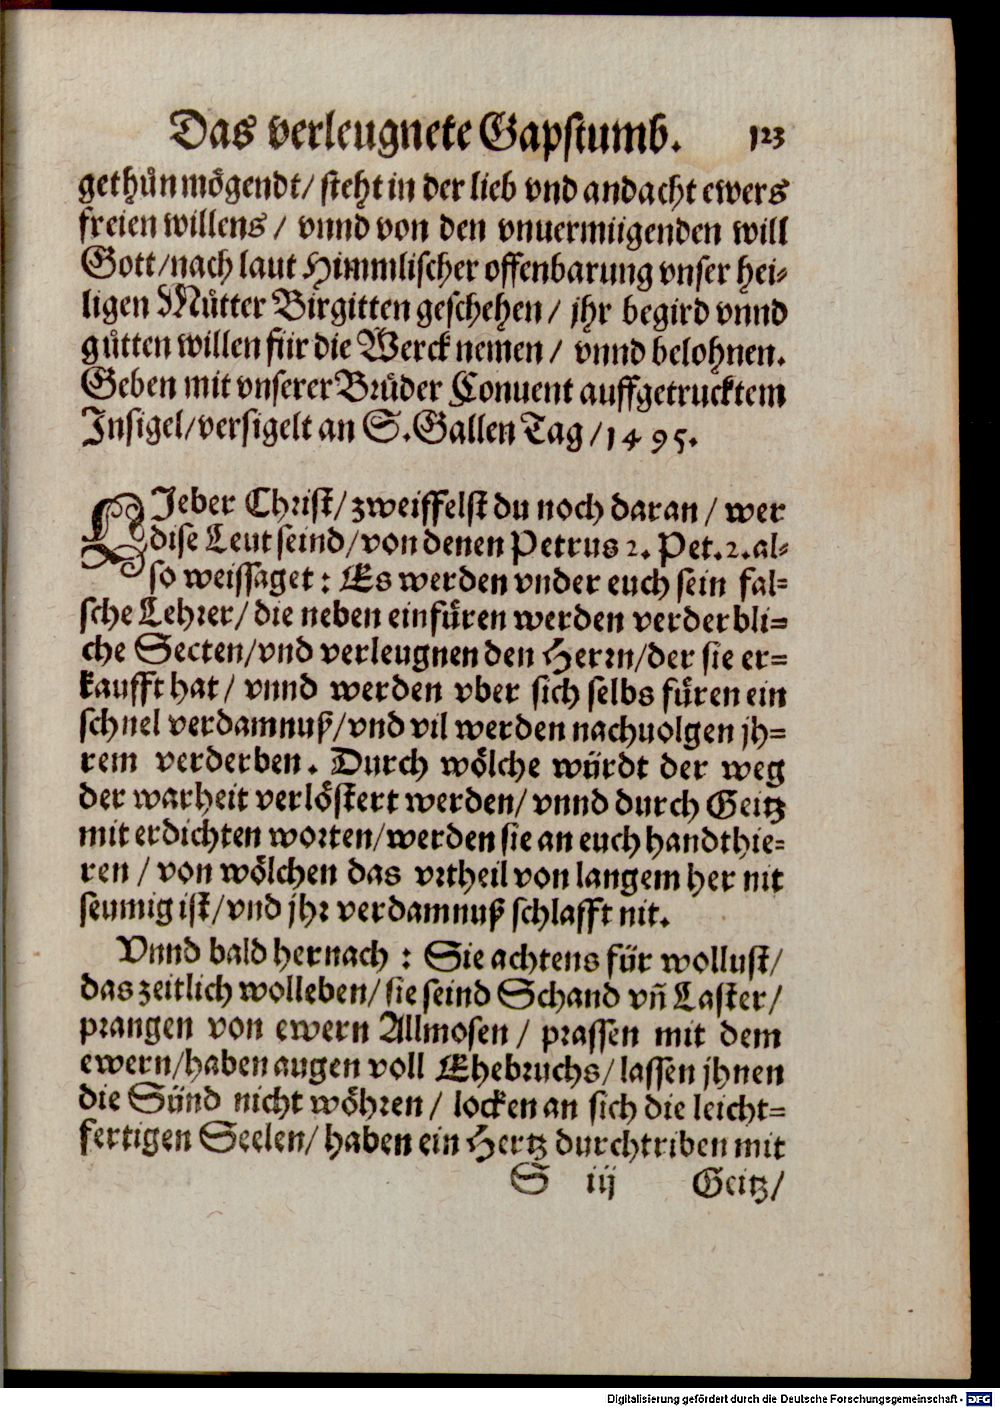 Das verleugnete Gapstumb. 123
gethůn mögendt/ steht in der lieb vnd andacht ewers
freien willens / vnnd von den vnuermügenden will
Gott/nach laut Himmlischer offenbarung vnser hei-
ligen Můtter Birgitten geschehen / jhr begird vnnd
gůtten willen für die Werck nemen / vnnd belohnen.
Geben mit vnserer Brůder Conuent auffgetrucktem
Insigel/versigelt an S.Gallen Tag /1495.
LIeber Christ/ zweiffelst du noch daran / wer
dise Leut seind/von denen Petrus 2. Pet.2.al-
so weissaget : Es werden vnder euch sein fal-
sche Lehrer/ die neben einfüren werden verderbli-
che Secten/vnd verleugnen den Herrn/der sie er-
kaufft hat/ vnnd werden vber sich selbs füren ein
schnel verdamnuß/vnd vil werden nachuolgen jh-
rem verderben. Durch wölche würdt der weg
der warheit verlöstert werden/ vnnd durch Geitz
mit erdichten worten/werden sie an euch handthie-
ren / von wölchen das vrtheil von langem her nit
seumig ist/vnd jhr verdamnuß schlafft nit.
Vnnd bald hernach : Sie achtens für wollust/
das zeitlich wolleben/ sie seind Schand vñ Laster/
prangen von ewern Allmosen / prassen mit dem
ewern/haben augen voll Ehebruchs/ lassen jhnen
die Sünd nicht wöhren / locken an sich die leicht-
fertigen Seelen/ haben ein Hertz durchtriben mit
S iij Geitz/
Digitalisierung gefördert durch die Deutsche Forschungsgemeinschaft - DFG